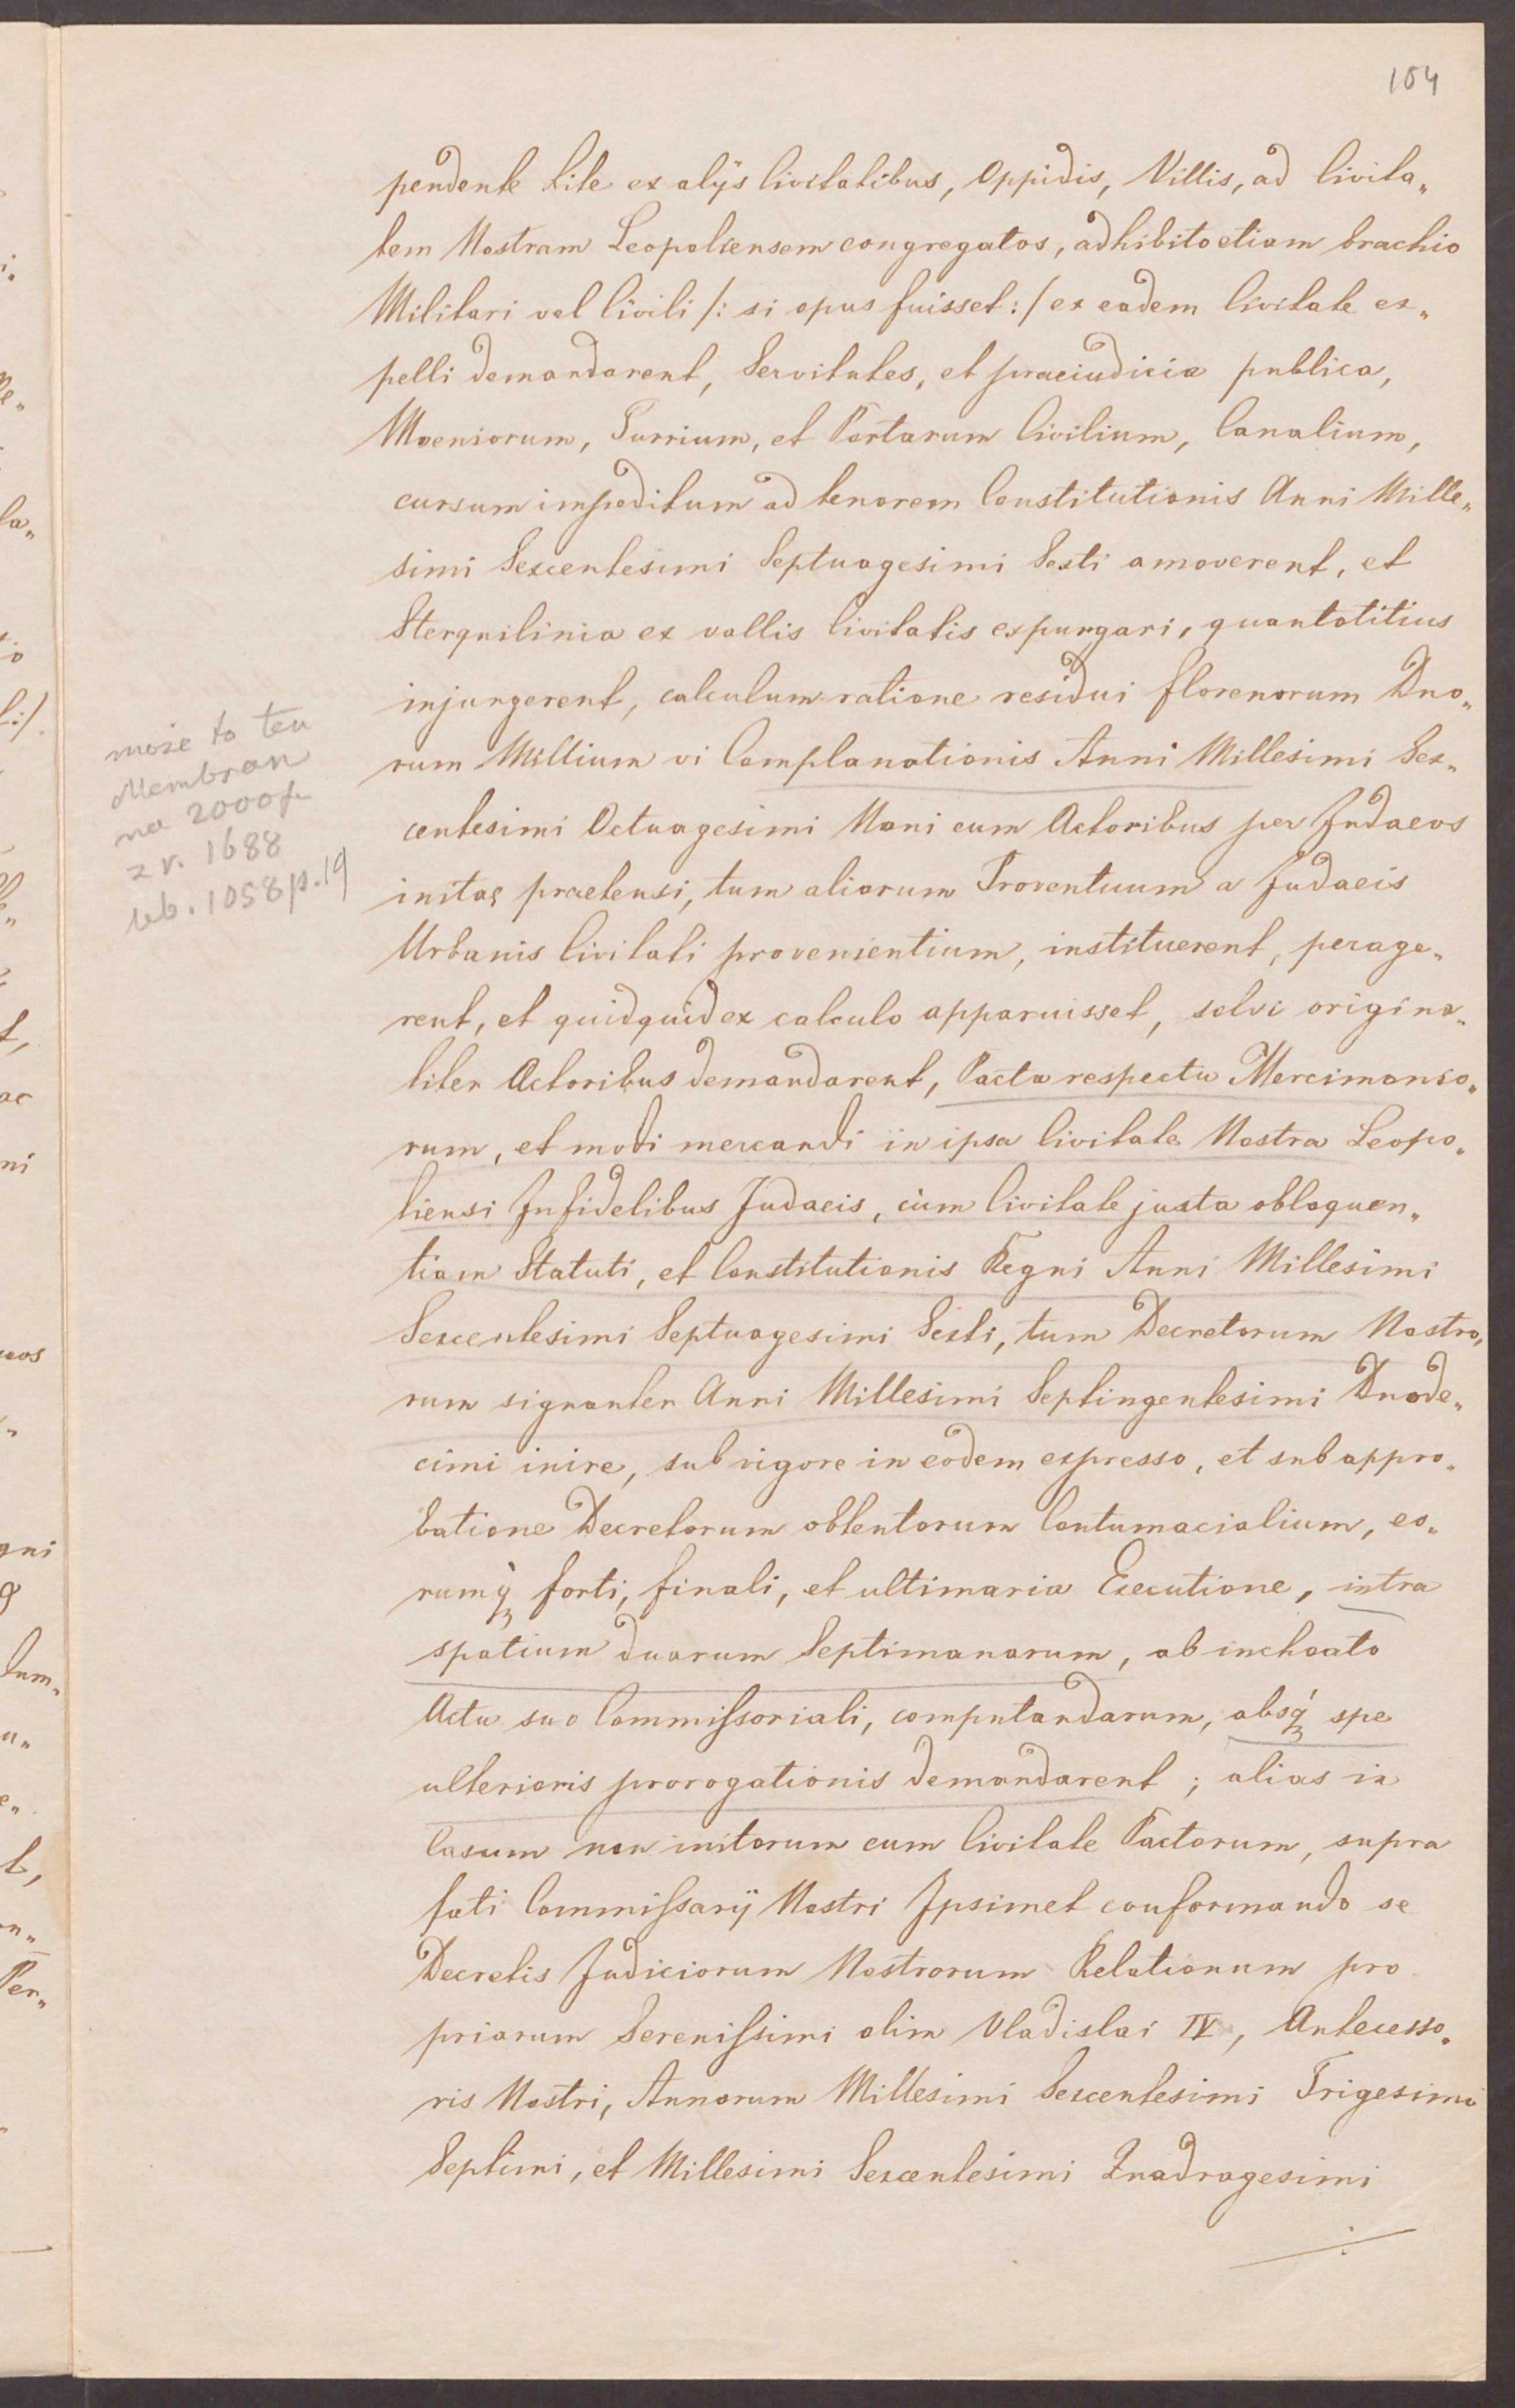 104
pendente Lite ex alijs Civitatibus, Oppidis, Villis, ad Civita„
tem Nostram Leopoliensem congregatos, adhibito etiam brachio
Militari vel Civili /: si opus fuisset :/ ex eadem Civitate ex„
pelli demandarent, Servitutes, et praeiudicia publica,
Moeniorum, Turrium, et Portarum Civilium, Canalium,
cursum impeditum ad tenorem Constitutionis Anni Mille„
simi Sexcentesimi Septuagesimi Sexti amoverent, et
Sterquilinia ex vallis Civitatis expurgari, quantotitius
injungerent, calculum ratione residui florenorum Duo„
rum Millium vi Complanationis Anni Millesimi Sex„
centesimi Octuagesimi Noni cum Actoribus per Judaeos
initae praetensi, tum aliorum Proventuum a Judaeis
Urbanis Civitati provenientium, instituerent, perage„
rent, et quidquid ex calculo apparuisset, solvi origina„
liter Actoribus demandarent, Pacta respectu Mercimonio„
rum, et modi mercandi in ipsa Civitate Nostra Leopo„
liensi Infidelibus Judaeis, cum Civitate juxta obloquen„
tiam Statuti, et Constitutionis Regni Anni Millesimi
Sexcentesimi Septuagesimi Sexti, tum Decretorum Nostro„
rum signanter Anni Millesimi Septingentesimi Duode„
cimi inire, sub vigore in eodem expresso, et sub appro„
batione Decretorum obtentorum Contumacialium, eo„
rumq́ forti, finali, et ultimaria Executione, intra
spatium duarum Septimanarum, ab inchoato
Actu suo Commissoriali, computandarum, absq́ spe
ulterioris prorogationis demandarent; alias in
Casum non initorum cum Civitate Pactorum, supra
fati Commissarij Nostri Ipsimet conformando se
Decretis Judiciorum Nostrorum Relationum pro
priarum Serenissimi olim Vladislai IV, Antecesso„
ris Nostri, Annorum Millesimi Sexcentesimi Trigesimi
Septimi, et Millesimi Sexcentesimi Quadragesimi
może to ten
Membran
na 2000 f
z r. 1688
1058 p. 19